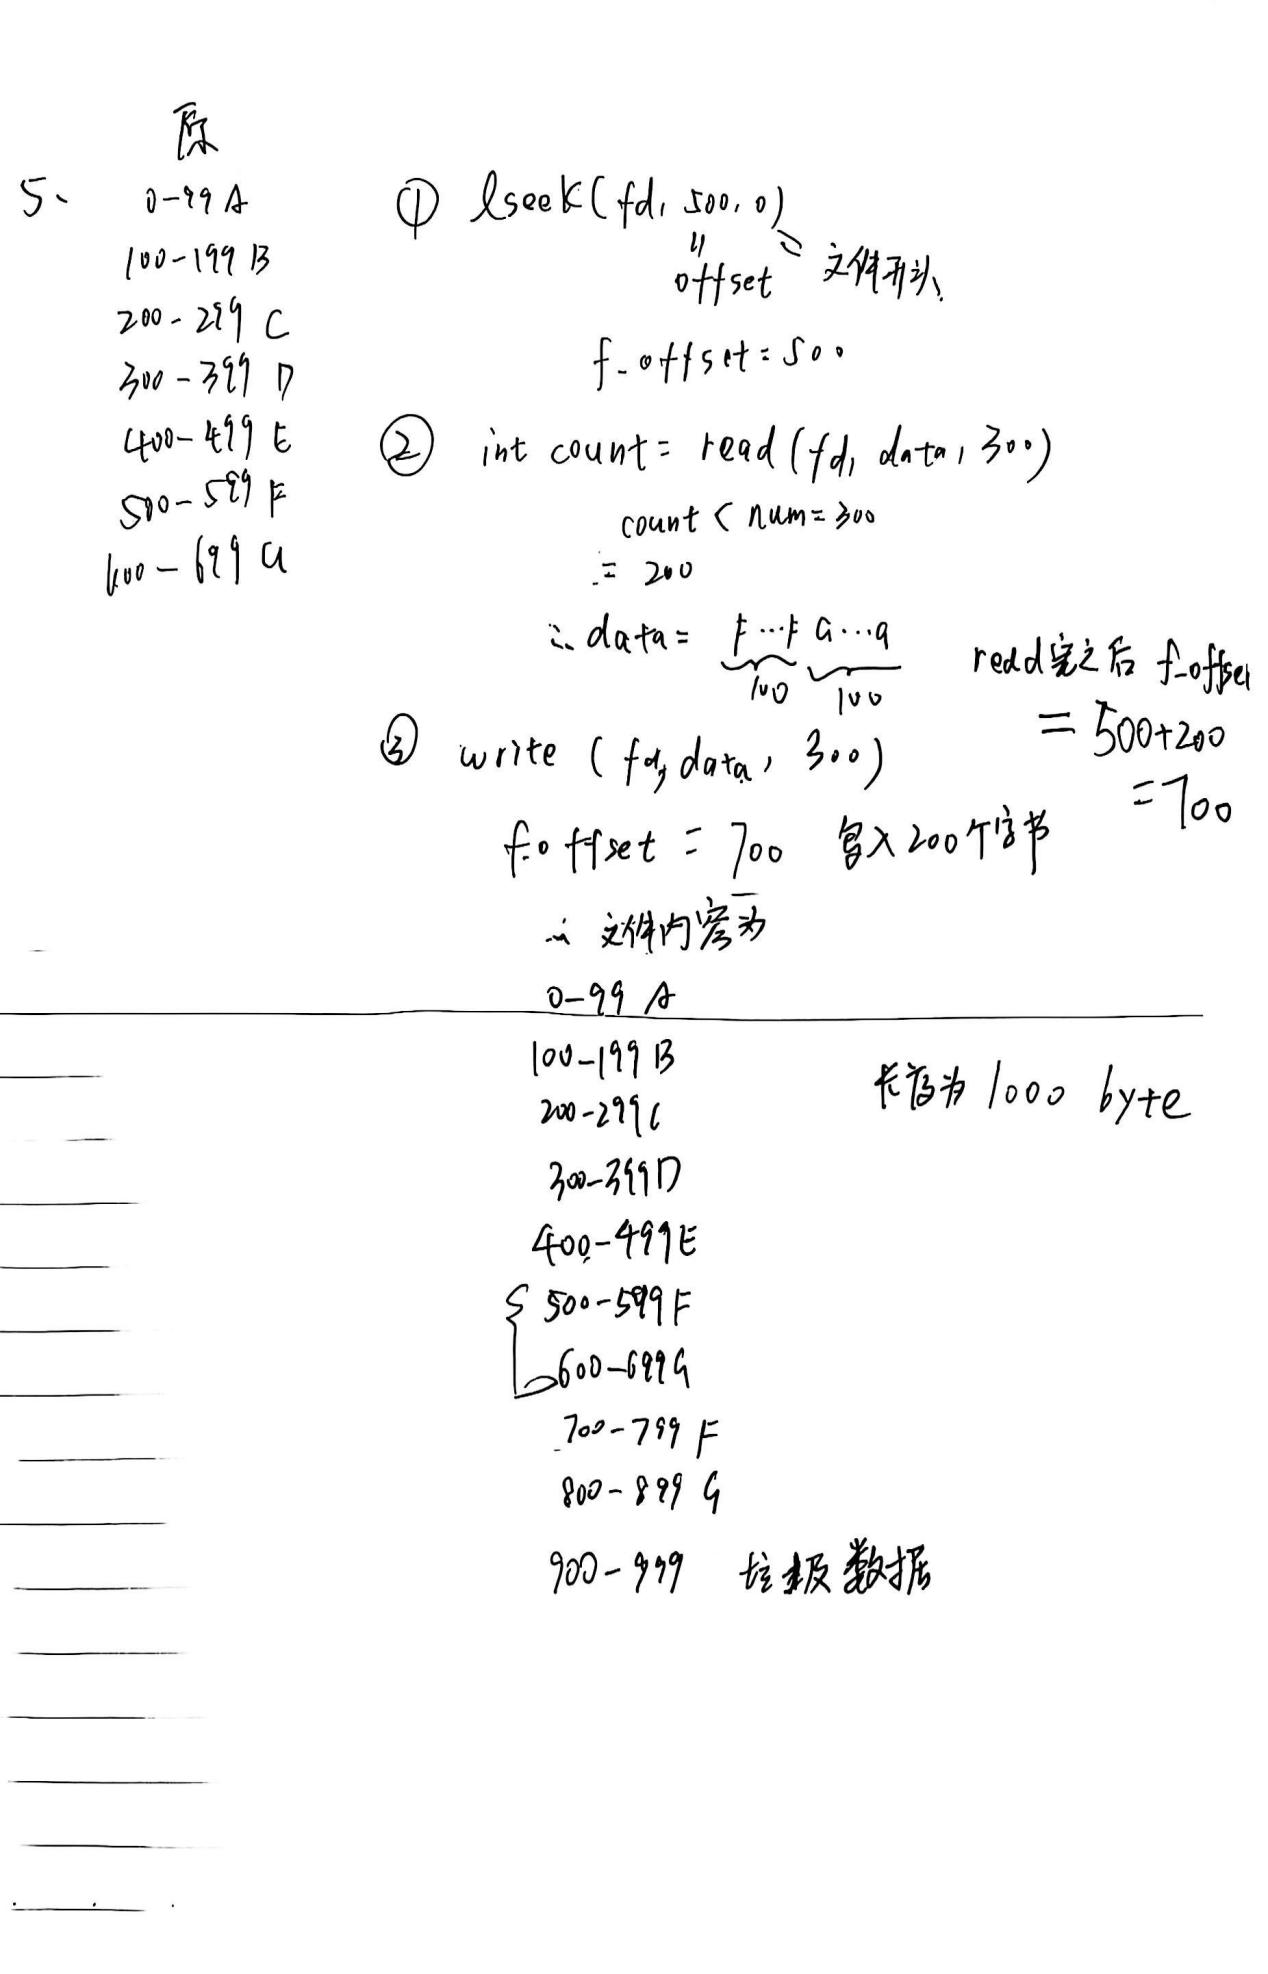 原
5、
0-99 A
100-199 B
200-299 C
300-399 D
400-499 E
500-599 F
600-699 G
① lseek(fd, 500, 0)
offset = 文件开头
f_offset = 500
② int count = read(fd, data, 300)
count < num = 300
= 200
∴ data = F...F G...G
100 100
read完之后 f_offset
= 500+200
= 700
③ write (fd, data, 300)
f_offset = 700 写入200个字节
∴ 文件内容为
0-99 A
100-199 B
200-299 C
300-399 D
400-499 E
500-599 F
600-699 G
700-799 F
800-899 G
900-999 垃圾数据
长度为 1000 byte